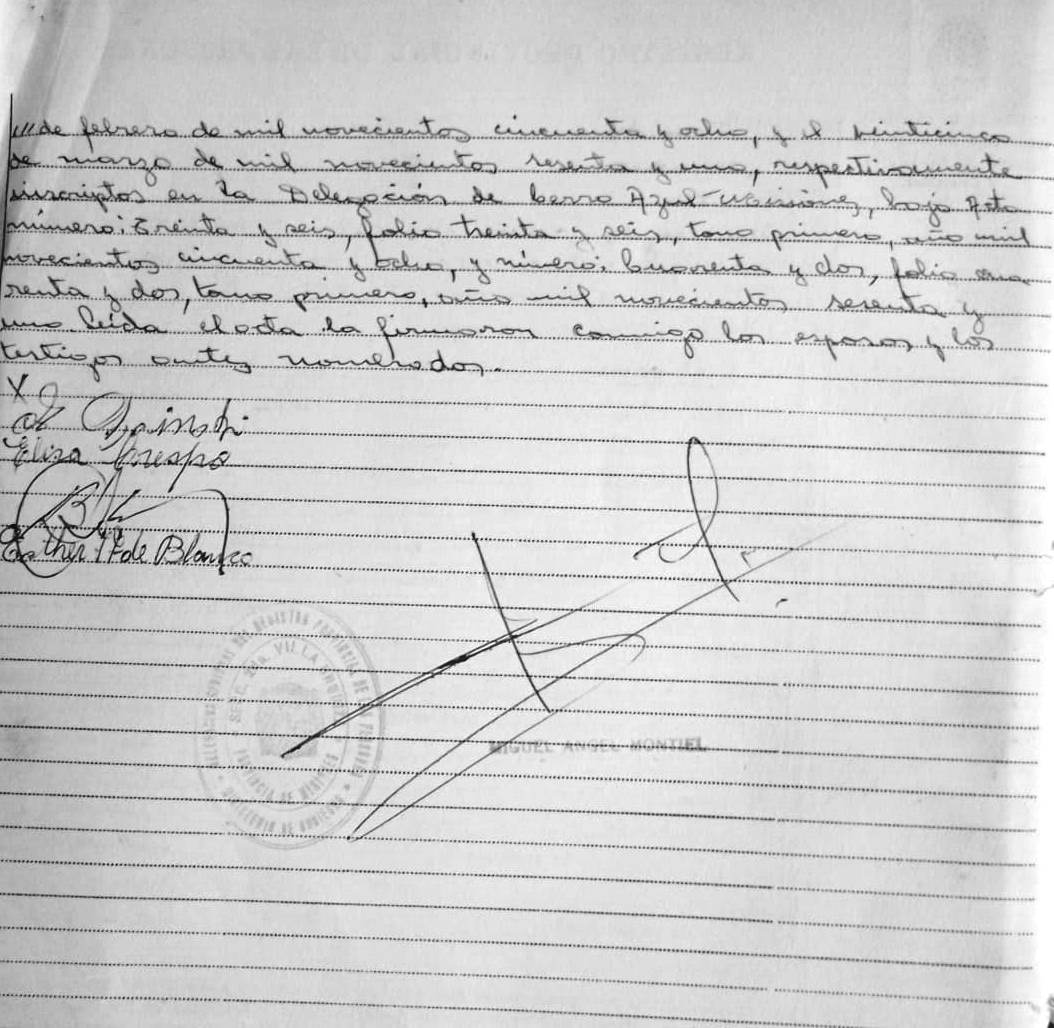 ///de febrero de mil novecientos cincuenta y ocho, y el veinticinco
de marzo de mil novecientos sesenta y uno, respectivamente
inscriptos en la Delegación de Cerro Azul-Misiones, bajo Acta
número: Treinta y seis, folio treinta y seis, tomo primero, año mil
novecientos cincuenta y ocho, y número: Cuarenta y dos, folio cua
renta y dos, tomo primero, año mil novecientos sesenta y
uno leída el acta la firmaron conmigo los esposos y los
testigos antes nombrados.
X
Elisa Crespo
Esther de Blanco
REGISTRO PROVINCIAL DE LAS PERSONAS
PROVINCIA DE MISIONES
MINISTERIO DE GOBIERNO
MIGUEL ANGEL MONTIEL